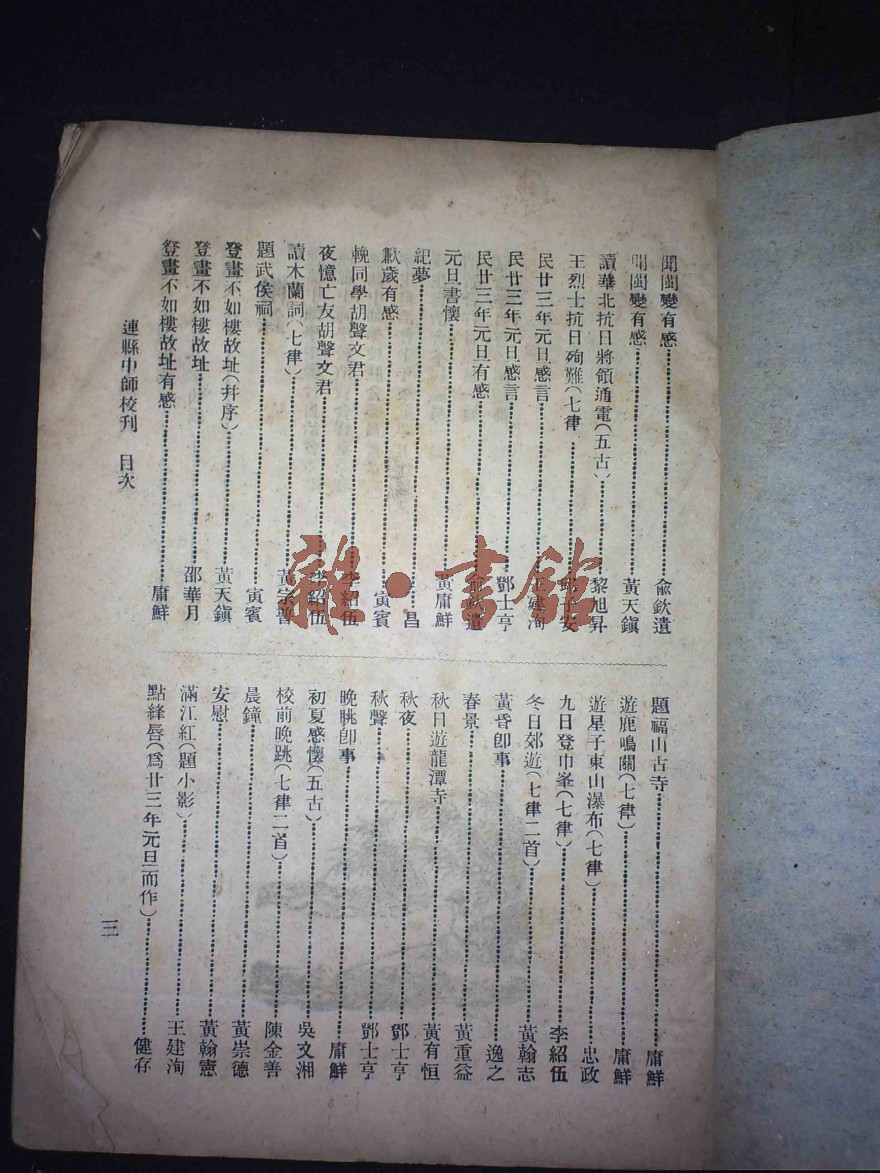 聞閩變有感………俞欽遺
聞閩變有感………黃天鎮
讀華北抗日將領通電(五古)………黎旭昇
王烈士抗日殉難(七律………邱子安
民廿三年元旦感言………王建洵
民廿三年元旦感言………鄧士亨
民廿三年元日有感………俞欽遺
元旦書懷………黃庸鮮
紀夢………昌
歉歲有感………寅賓
輓同學胡聲文君………李紹伍
夜憶亡友胡聲文君………李紹伍
讀木蘭詞(七律)………黃宗普
題武侯祠………寅賓
登畫不如樓故址(幷序)………黃天鎮
登畫不如樓故址………邵華月
登畫不如樓故址有感………庸鮮
題福山古寺………庸鮮
遊鹿鳴關(七律)………庸鮮
遊星子東山瀑布(七律)………忠政
九日登巾峯(七律)………李紹伍
冬日郊遊(七律二首)………黃翰志
黃昏卽事………逸之
春景………黃重益
秋日遊龍潭寺………黃有恒
秋夜………鄧士亨
秋聲………鄧士亨
晚眺卽事………庸鮮
初夏感懷(五古)………吳文湘
校前晚跳(七律二首)………陳金善
晨鐘………黃崇德
安慰………黃翰憲
滿江紅(題小影)………王建洵
點絳唇(爲廿三年元旦而作)………健存
連縣中師校刊 目次
三
雜·書館